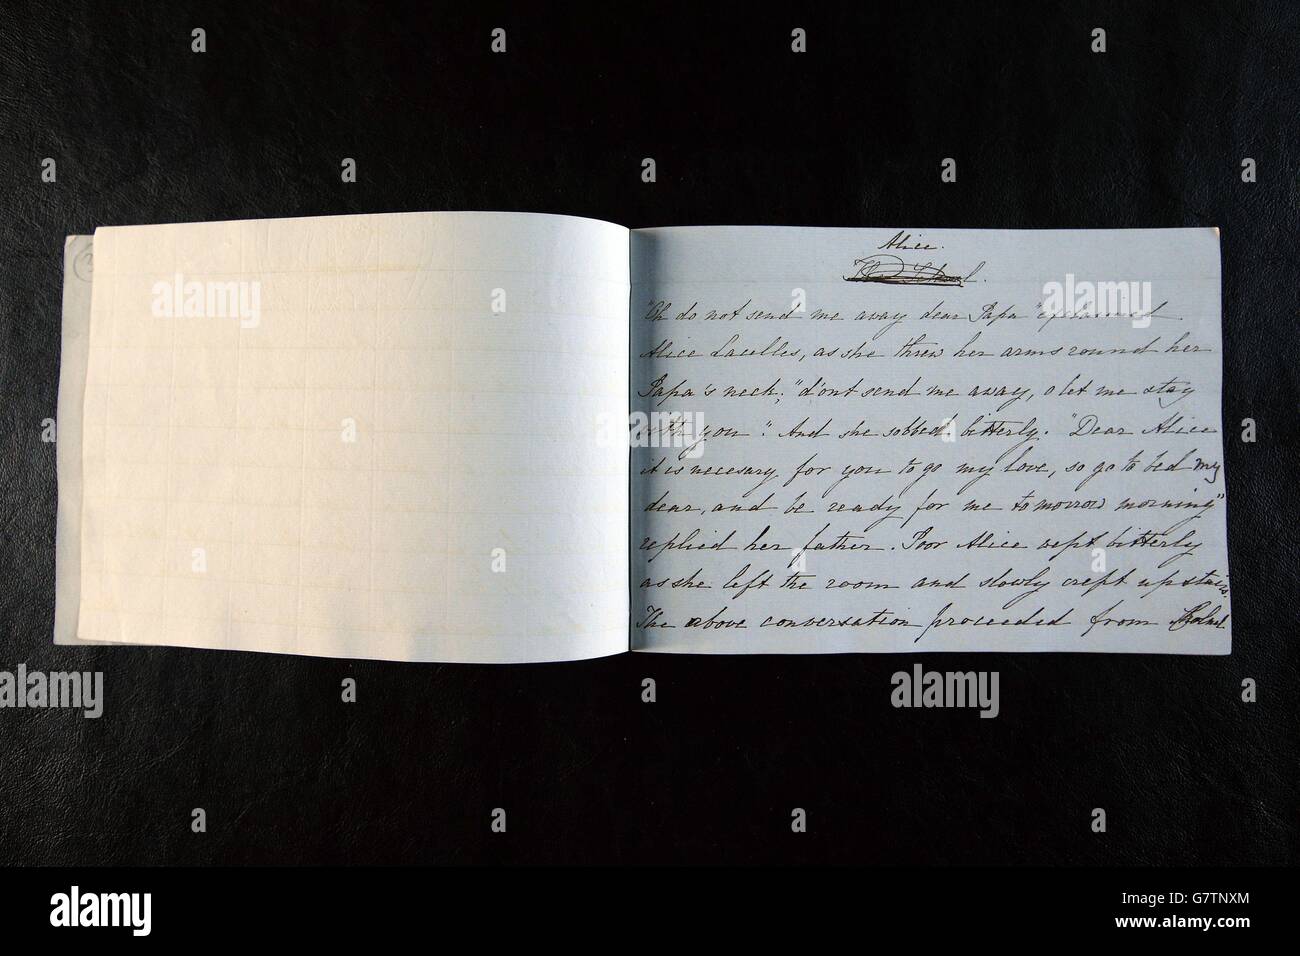 Alice.
"Oh do not send me away dear Papa" exclaimed
Alice Lacelles, as she threw her arms round her
Papa's neck; "dont send me away, o let me stay
with you." And she sobbed bitterly. "Dear Alice
it is necesary for you to go my love, so go to bed my
dear, and be ready for me tomorrow morning"
replied her father. Poor Alice wept bitterly
as she left the room and slowly crept upstairs.
The above conversation proceeded from Colnel
alamy
Image ID: G7TNXM
www.alamy.com